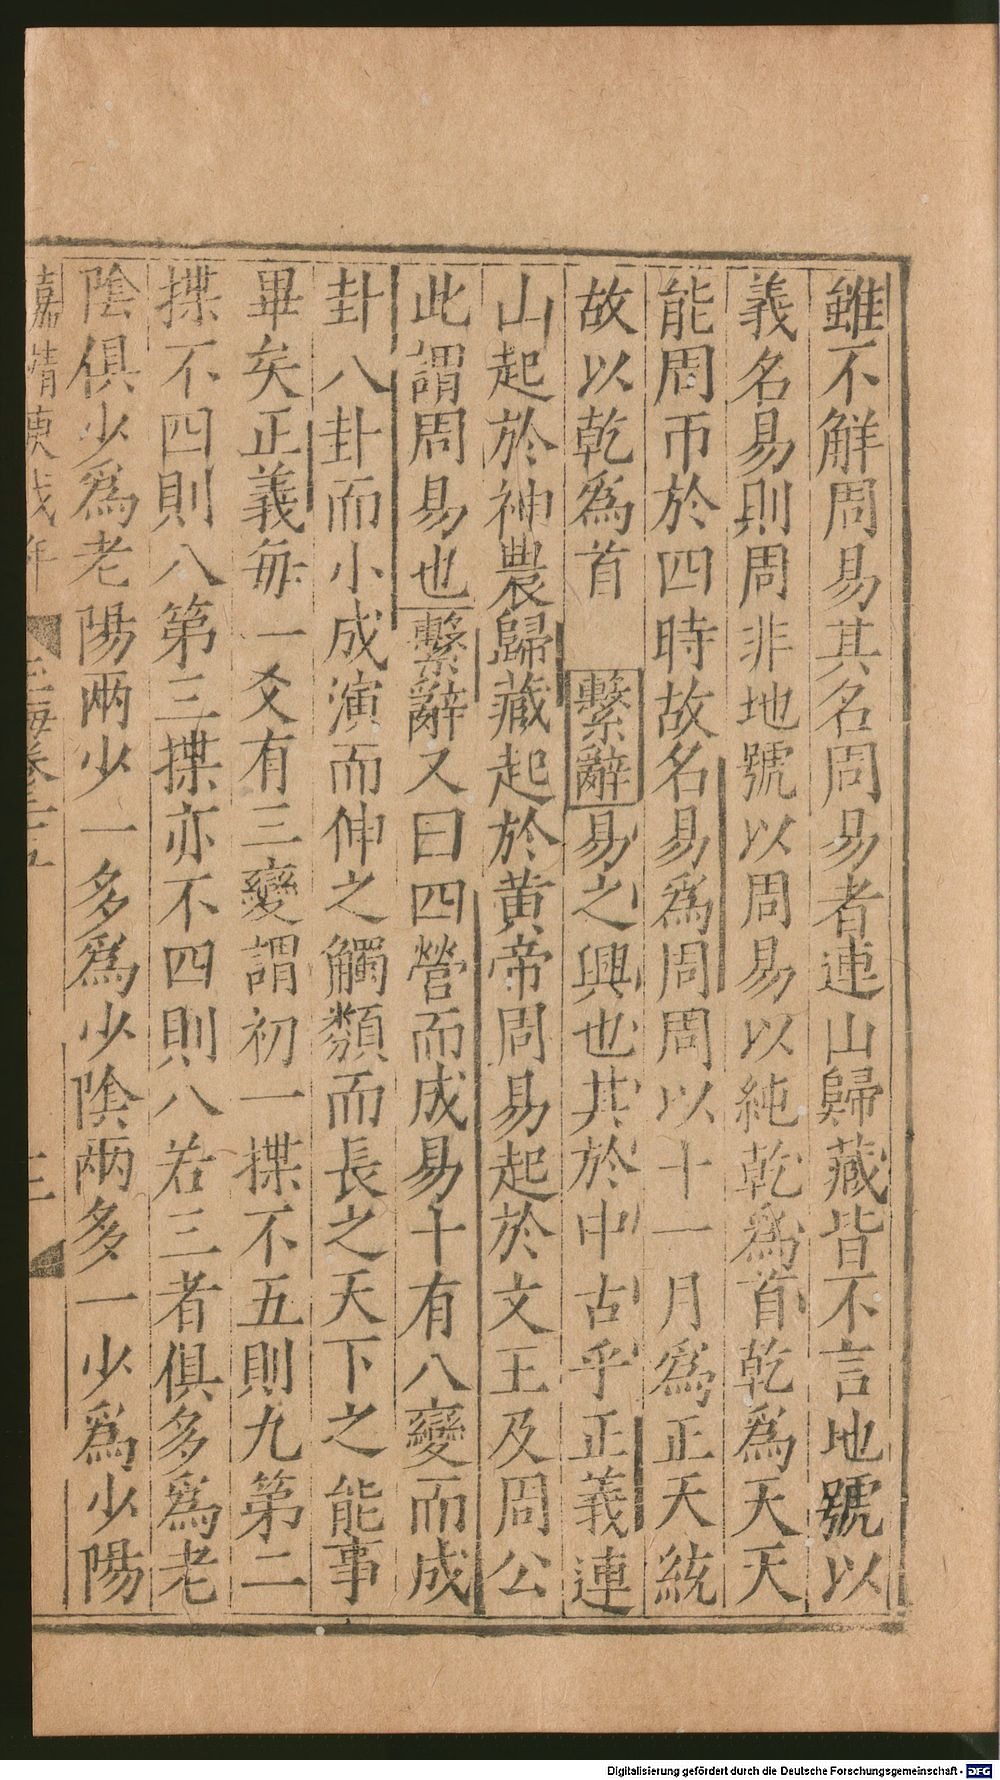 雖不解周易其名周易者連山歸藏皆不言地號以
義名易則周非地號以周易以純乾爲首乾爲天天
能周帀於四時故名易爲周周以十一月爲正天統
故以乾爲首 繫辭易之興也其於中古乎正義連
山起於神農歸藏起於黃帝周易起於文王及周公
此謂周易也繫辭又曰四營而成易十有八變而成
卦八卦而小成演而伸之觸類而長之天下之能事
畢矣正義每一爻有三變謂初一揲不五則九第二
揲不四則八第三揲亦不四則八若三者俱多爲老
陰俱少爲老陽兩少一多爲少陰兩多一少爲少陽
嘉靖庚戌年 玉海卷三十五 三
Digitalisierung gefördert durch die Deutsche Forschungsgemeinschaft - DFG